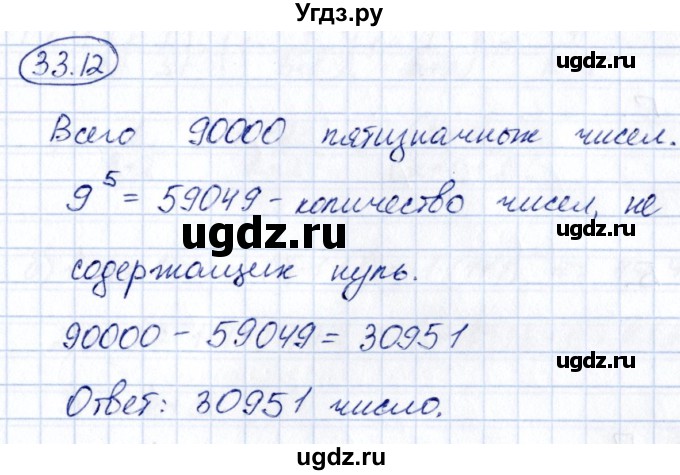 Угдз.ру
33.12
ugdz.ru
Всего 90000 пятизначных чисел.
9⁵ = 59049 - количество чисел, не
ugdz.ru
содержащих нуль.
90000 - 59049 = 30951
ugdz.ru
Ответ: 30951 число.
ugdz.ru
ugdz.ru